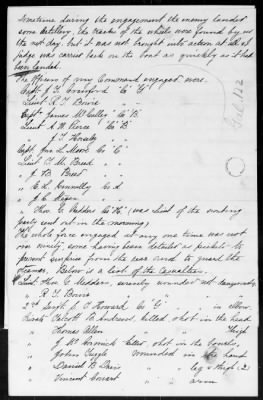 Sometime during the engagement the enemy landed
some Artillery, the tracks of the wheels were found by us
the next day. But it was not brought into action at all, & I
judge was carried back on the boat as quickly as it had
been landed.
The Officers of my Command engaged were.
Capt. J. T. Crawford Co "G"
Lieut R. T. Bowie " "
Capt. James McCulley Co "B"
Lieut A. M. Pierce Co "B"
" J. T. "
Capt. Jno L. Moore Co "C"
Lieut T. M. Breed " "
" J. B. Breed " "
" C. L. Connolly Co
" J. C. "
" Thos. G. Medders Co "K" (was Lieut of the working
party sent out in the morning)
The whole force engaged at any one time was not
over ninety, some having been detailed as pickets to
prevent surprise from the rear and to guard the
. Below is a list of the Casualties.
Lieut. Thos. G. Medders, severely wounded not dangerously
" R. T. Bowie " " "
1st Sergt J. O. Howard, Co "G" " in
Private B. Andrews, killed shot in the head
" Thomas Allen " " " Thigh
" J. McCormick killed, shot in the bowels,
" John Tuggle wounded in the hand
" Daniel B. Davis " " leg & thigh (2)
" Vincent " " arm